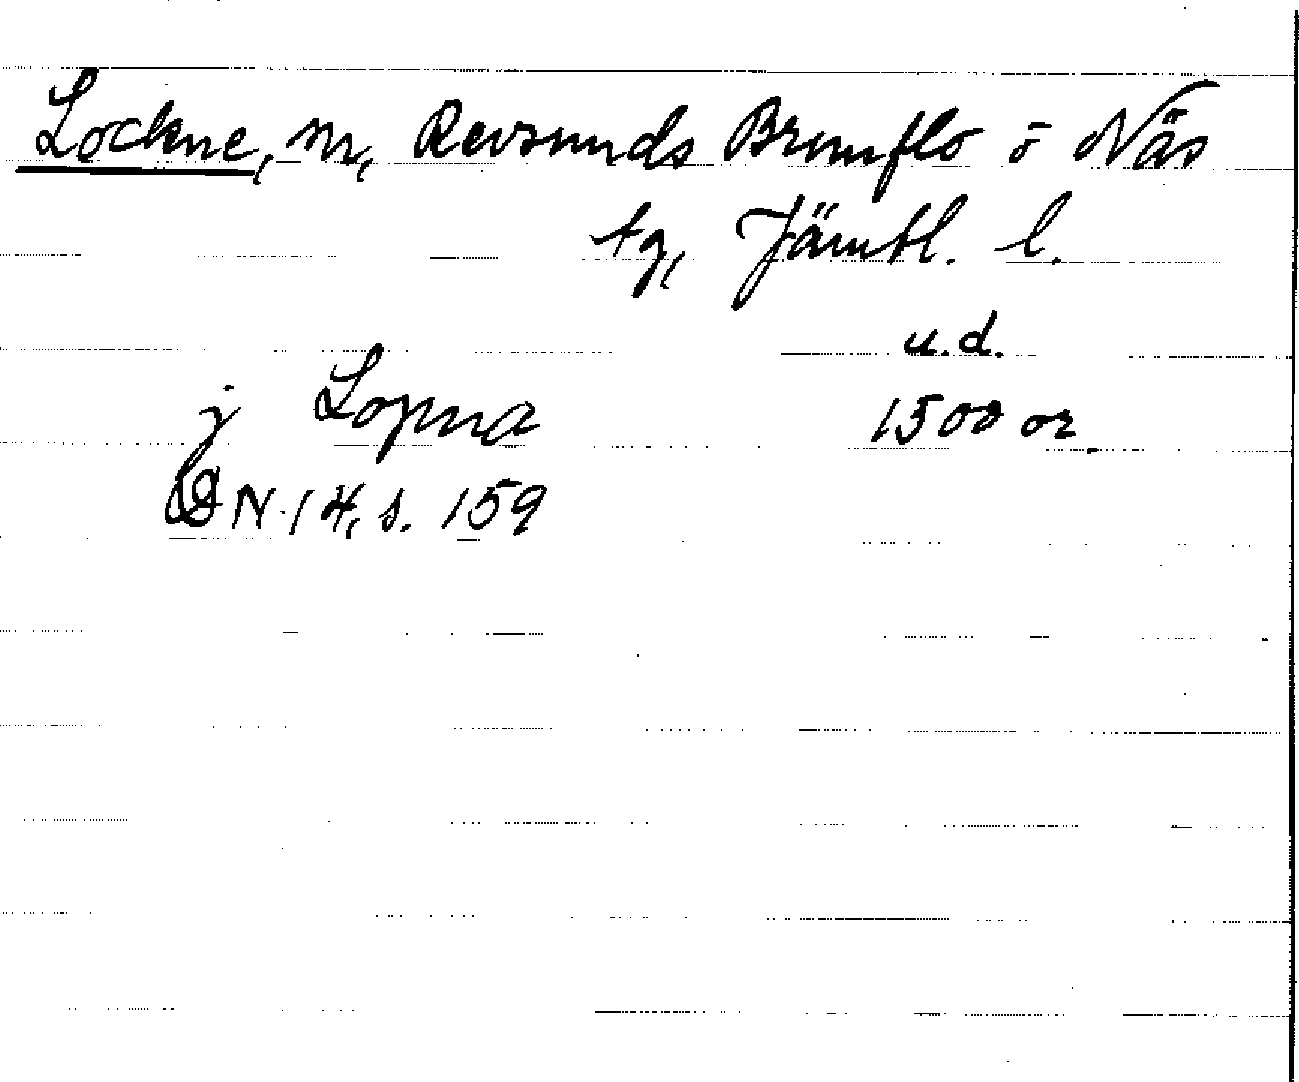 Lockne, sn, Revsunds Brunflo o Näs
tg, Jämtl. l.
u.d.
j Lopna 1500 or
DN 14, s. 159